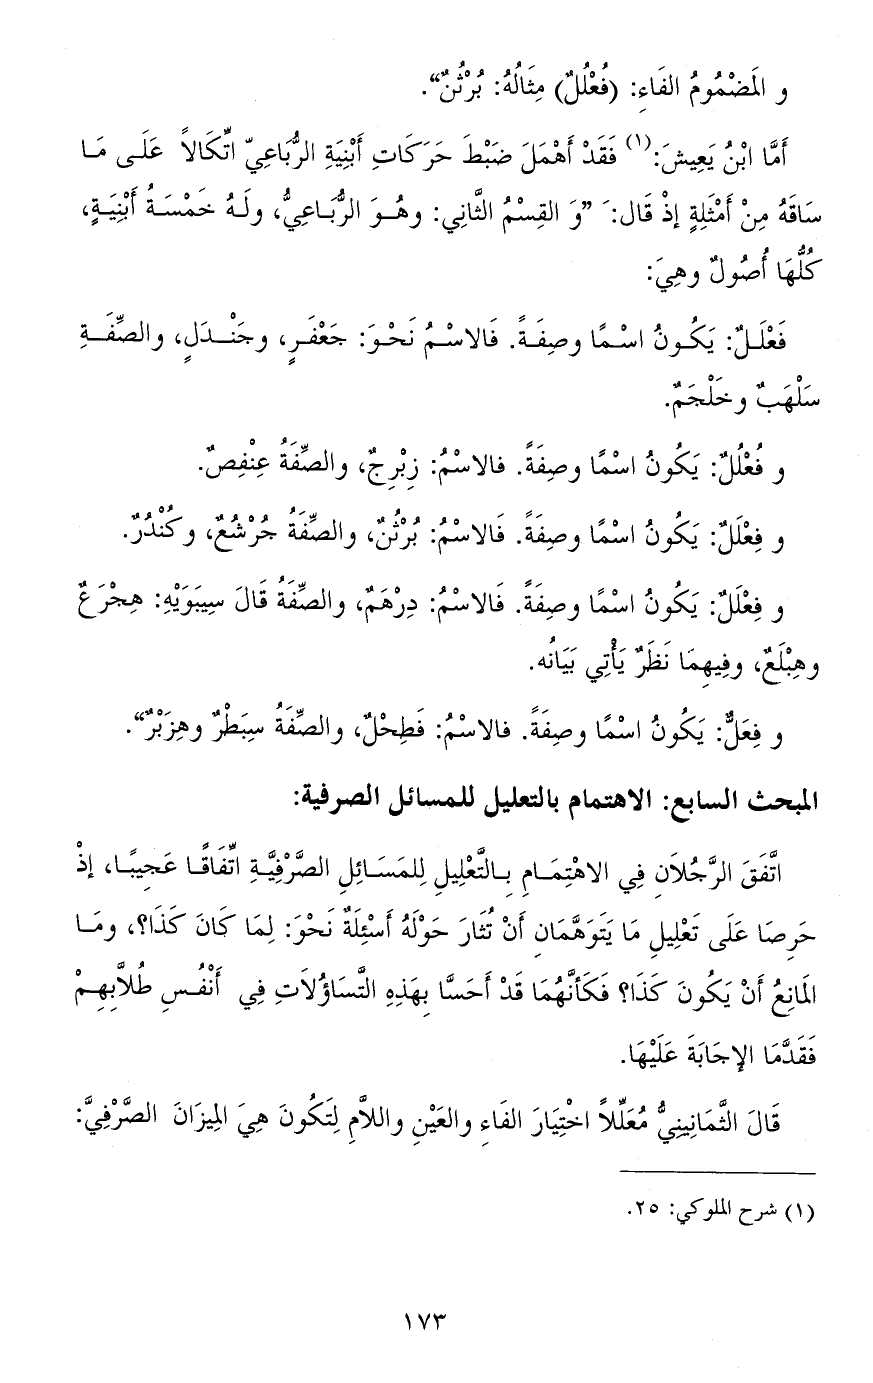 و المَضْمُومُ الفَاءِ: (فُعْلُلٌ) مِثَالُهُ: بُرْثُنٌ“.
أَمَّا ابْنُ يَعِيشَ:(١) فَقَدْ أَهْمَلَ ضَبْطَ حَرَكَاتِ أَبْنِيَةِ الرُّبَاعِيّ اتِّكَالاً عَلَى مَا
سَاقَهُ مِنْ أَمْثِلَةٍ إذْ قَال:َ ”وَ القِسْمُ الثَّانِي: وهُوَ الرُّبَاعِيُّ، ولَهُ خَمْسَةُ أَبْنِيَةٍ،
كُلُّهَا أُصُولٌ وهِيَ:
فَعْلَلٌ: يَكُونُ اسْمًا وصِفَةً. فَالاسْمُ نَحْوَ: جَعْفَرٍ، وجَنْدَلٍ، والصِّفَةِ
سَلْهَبٌ وخَلْجَمٌ.
و فُعْلُلٌ: يَكُونُ اسْمًا وصِفَةً. فالاسْمُ: زِبْرِجٌ، والصِّفَةُ عِنْفِصٌ.
و فِعْلَلٌ: يَكُونُ اسْمًا وصِفَةً. فَالاسْمُ: بُرْثُنٌ، والصِّفَةُ جُرْشُعٌ، وكُنْدُرٌ.
و فِعْلَلٌ: يَكُونُ اسْمًا وصِفَةً. فَالاسْمُ: دِرْهَمٌ، والصِّفَةُ قَالَ سِيبَوَيْهِ: هِجْرَعٌ
وهِبْلَعٌ، وفِيهِمَا نَظَرٌ يَأْتِي بَيَانُه.
و فِعَلٌّ: يَكُونُ اسْمًا وصِفَةً. فالاسْمُ: فَطِحْلٌ، والصِّفَةُ سِبَطْرٌ وهِزَبْرٌ“.
المبحث السابع: الاهتمام بالتعليل للمسائل الصرفية:
اتَّفَقَ الرَّجُلاَنِ فِي الاهْتِمَامِ بِالتَّعْلِيلِ لِلمَسَائِلِ الصَّرْفِيَّةِ اتِّفَاقًا عَجِيبًا، إذْ
حَرِصَا عَلَى تَعْلِيلِ مَا يَتَوَهَّمَانِ أَنْ تُثَارَ حَوْلَهُ أَسْئِلَةٌ نَحْوَ: لِمَا كَانَ كَذَا؟، ومَا
المَانِعُ أَنْ يَكُونَ كَذَا؟ فَكَأَنَّهُمَا قَدْ أَحَسَّا بِهَذِهِ التَّسَاؤُلاَتِ فِي أَنْفُسِ طُلاَّبِهِمْ
فَقَدَّمَا الإجَابَةَ عَلَيْهَا.
قَالَ الثَّمَانِينِيُّ مُعَلِّلاً اخْتِيَارَ الفَاءِ والعَيْنِ واللاَّمِ لِتَكُونَ هِيَ المِيزَانَ الصَّرْفِيَّ:
(١) شرح الملوكي: ٢٥.
١٧٣